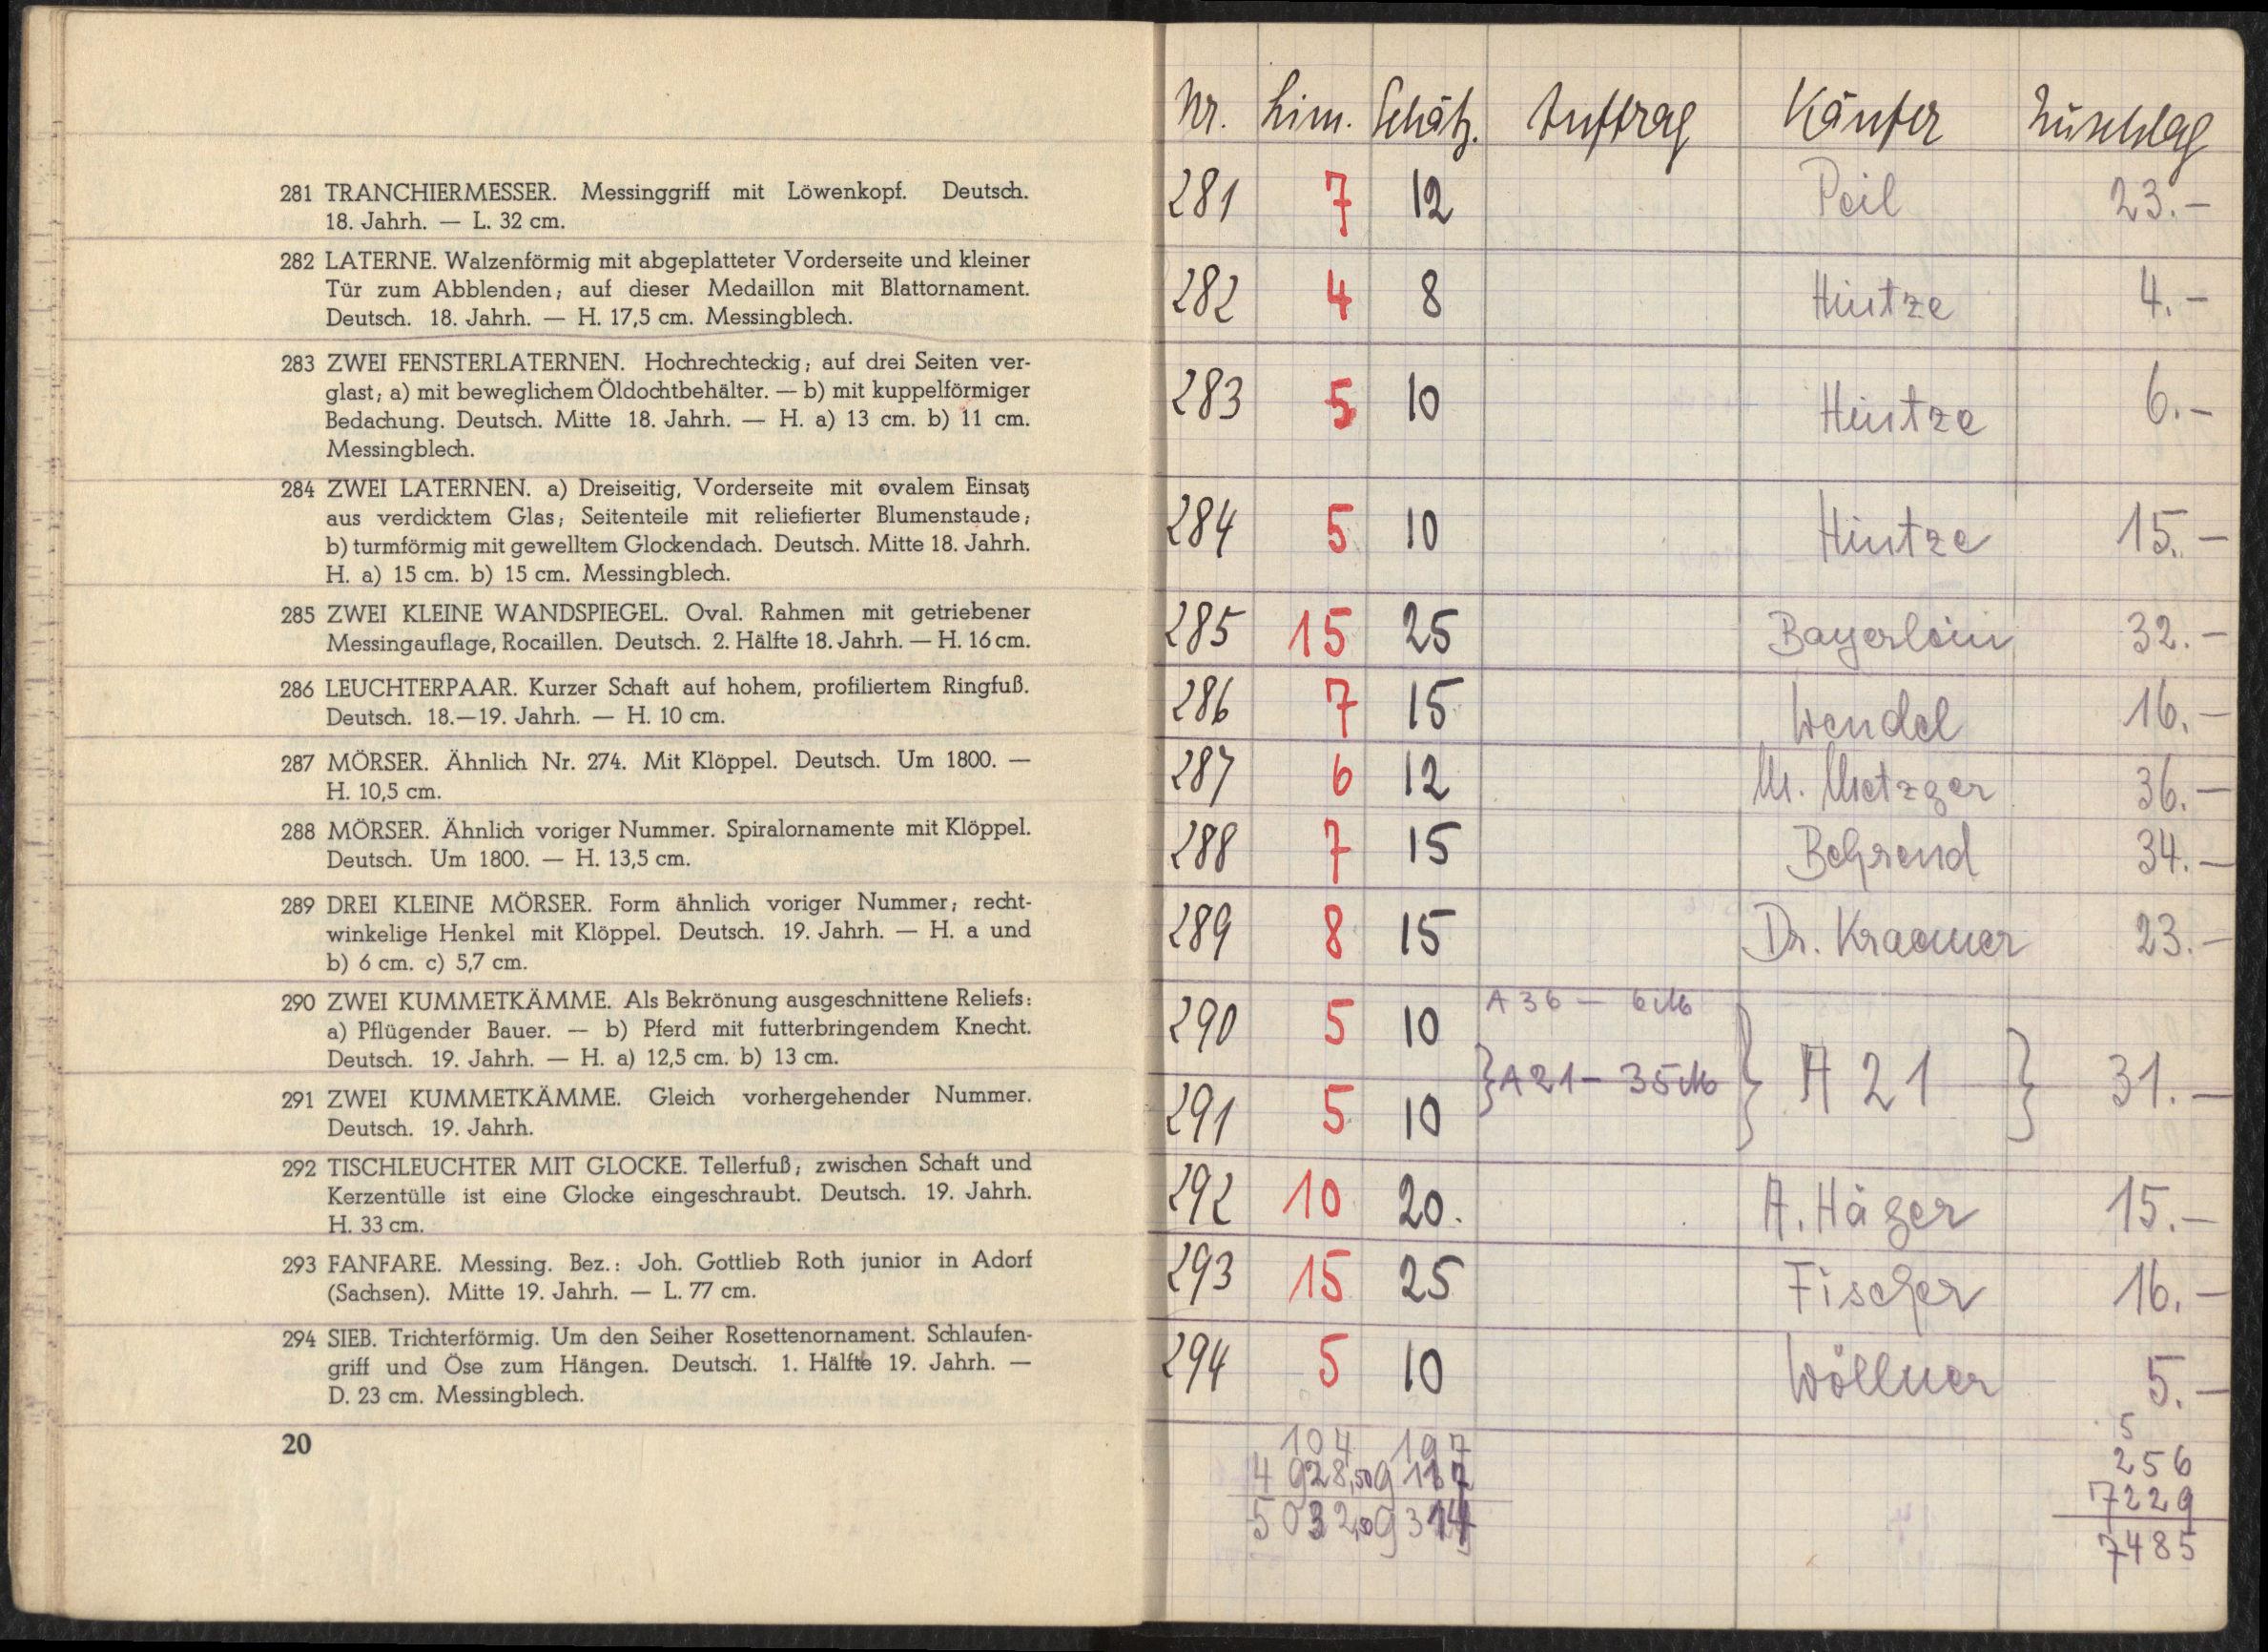 281 TRANCHIERMESSER. Messinggriff mit Löwenkopf. Deutsch.
18. Jahrh. — L. 32 cm.
282 LATERNE. Walzenförmig mit abgeplatteter Vorderseite und kleiner
Tür zum Abblenden; auf dieser Medaillon mit Blattornament.
Deutsch. 18. Jahrh. — H. 17,5 cm. Messingblech.
283 ZWEI FENSTERLATERNEN. Hochrechteckig; auf drei Seiten ver-
glast; a) mit beweglichem Öldochtbehälter. — b) mit kuppelförmiger
Bedachung. Deutsch. Mitte 18. Jahrh. — H. a) 13 cm. b) 11 cm.
Messingblech.
284 ZWEI LATERNEN. a) Dreiseitig, Vorderseite mit ovalem Einsatz
aus verdicktem Glas; Seitenteile mit reliefierter Blumenstaude;
b) turmförmig mit gewelltem Glockendach. Deutsch. Mitte 18. Jahrh.
H. a) 15 cm. b) 15 cm. Messingblech.
285 ZWEI KLEINE WANDSPIEGEL. Oval. Rahmen mit getriebener
Messingauflage, Rocaillen. Deutsch. 2. Hälfte 18. Jahrh. — H. 16 cm.
286 LEUCHTERPAAR. Kurzer Schaft auf hohem, profiliertem Ringfuß.
Deutsch. 18.—19. Jahrh. — H. 10 cm.
287 MÖRSER. Ähnlich Nr. 274. Mit Klöppel. Deutsch. Um 1800. —
H. 10,5 cm.
288 MÖRSER. Ähnlich voriger Nummer. Spiralornamente mit Klöppel.
Deutsch. Um 1800. — H. 13,5 cm.
289 DREI KLEINE MÖRSER. Form ähnlich voriger Nummer; recht-
winkelige Henkel mit Klöppel. Deutsch. 19. Jahrh. — H. a und
b) 6 cm. c) 5,7 cm.
290 ZWEI KUMMETKÄMME. Als Bekrönung ausgeschnittene Reliefs:
a) Pflügender Bauer. — b) Pferd mit futterbringendem Knecht.
Deutsch. 19. Jahrh. — H. a) 12,5 cm. b) 13 cm.
291 ZWEI KUMMETKÄMME. Gleich vorhergehender Nummer.
Deutsch. 19. Jahrh.
292 TISCHLEUCHTER MIT GLOCKE. Tellerfuß; zwischen Schaft und
Kerzentülle ist eine Glocke eingeschraubt. Deutsch. 19. Jahrh.
H. 33 cm.
293 FANFARE. Messing. Bez.: Joh. Gottlieb Roth junior in Adorf
(Sachsen). Mitte 19. Jahrh. — L. 77 cm.
294 SIEB. Trichterförmig. Um den Seiher Rosettenornament. Schlaufen-
griff und Öse zum Hängen. Deutsch. 1. Hälfte 19. Jahrh. —
D. 23 cm. Messingblech.
20
Nr. Lim. Schätz. Auftrag Käufer Zuschlag
281 7 12 Peil 23.—
282 4 8 Hintze 4.—
283 5 10 Hintze 6.—
284 5 10 Hintze 15.—
285 15 25 Bayerlein 32.—
286 7 15 Wendel 16.—
287 6 12 M. Metzger 36.—
288 7 15 Behrend 34.—
289 8 15 Dr. Kraemer 23.—
290 5 10 A 36 — 6 M
} A 21 — 35 M } A 21 } 31.—
291 5 10
292 10 20. A. Häger 15.—
293 15 25 Fischer 16.—
294 5 10 Wöllner 5.—
5
104 197 256
4 928,50 7229
5032,50 7485